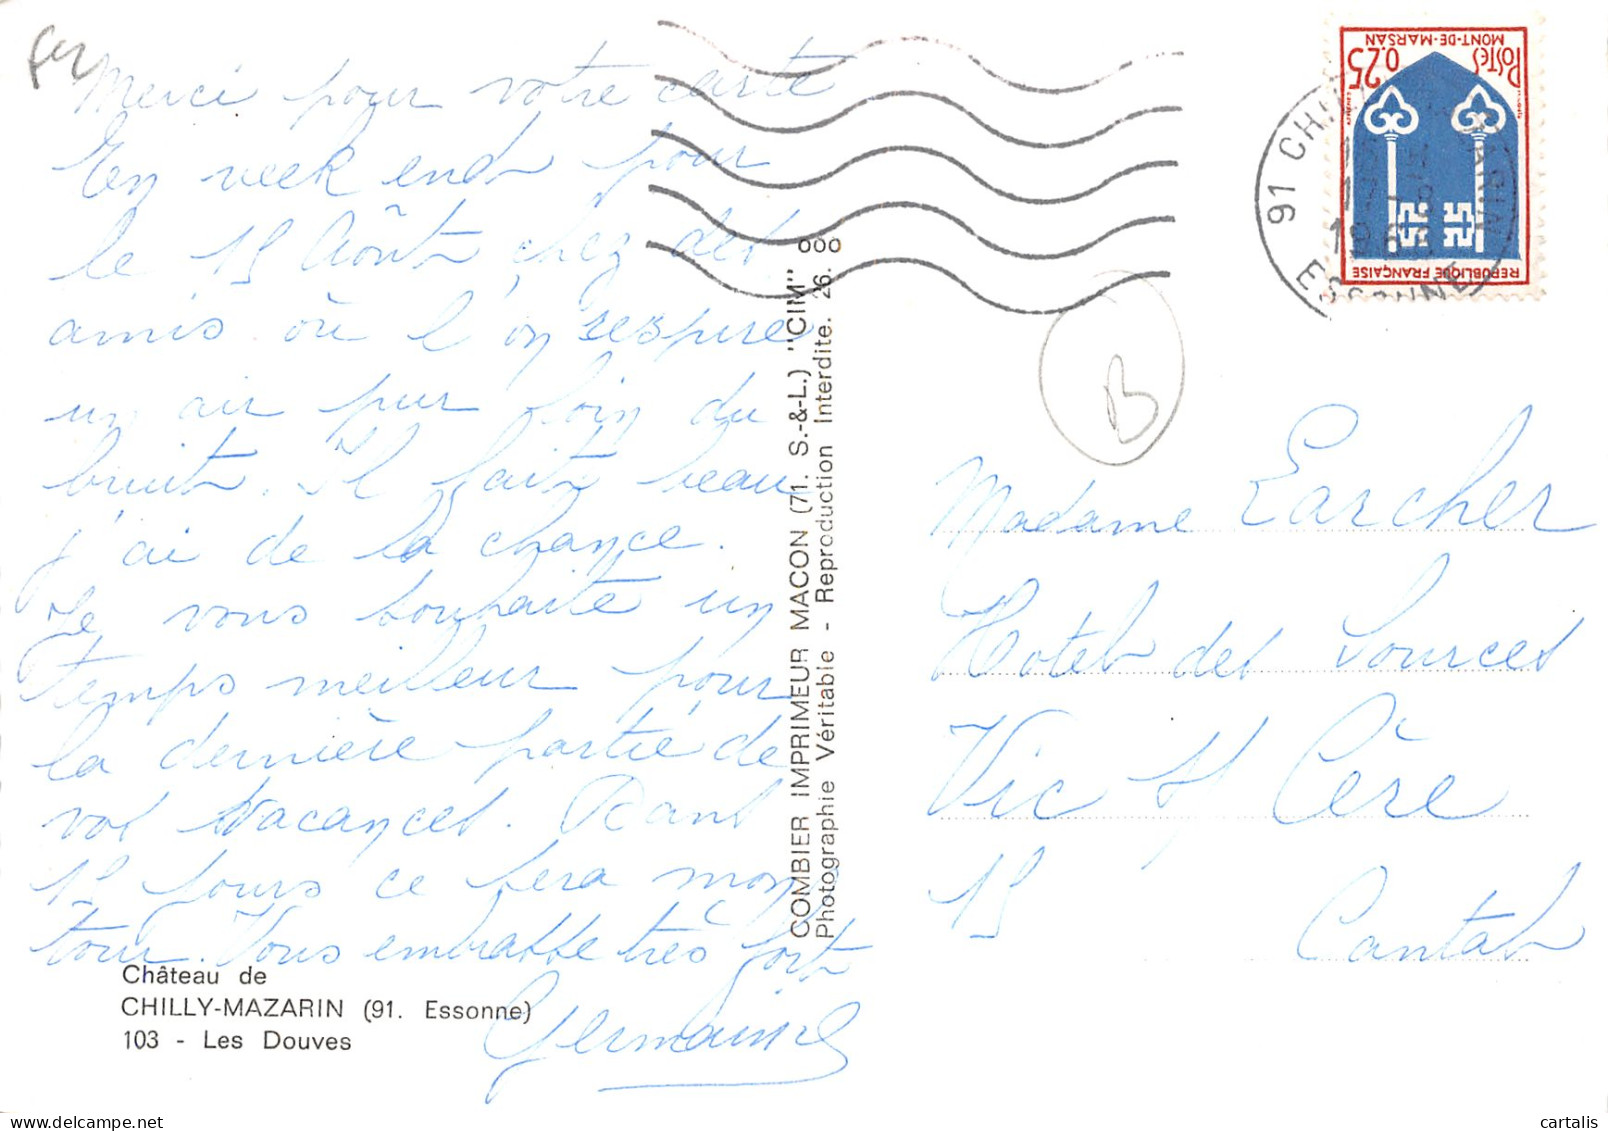 Merci pour votre carte
En week end pour
le 15 Août chez des
amis où l'on respire
un air pur loin du
bruit. Il fait beau
j'ai de la chance.
Je vous souhaite un
temps meilleur pour
la dernière partie de
vos vacances. Dans
15 jours ce sera mon
tour. Vous embrasse très fort
Germaine
Château de
CHILLY-MAZARIN (91. Essonne)
103 - Les Douves
COMBIER IMPRIMEUR MACON (71. S.-&-L.) "CIM"
Photographie Véritable - Reproduction Interdite. 26. 000
POSTES
0.25
MONT-DE-MARSAN
REPUBLIQUE FRANÇAISE
91 CHILLY MAZARIN
ESSONNE
B
Madame Larcher
Hotel des Sources
Vic s/ Cère
15 Cantal
delcampe.net
cartalis